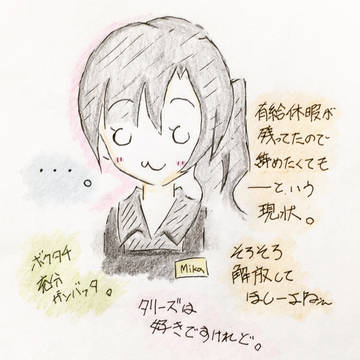 有給休暇が
残ってたので
辞めたくても
ーという
現状。
・・・。
そろそろ
解放して
ほしーよねぇ
Mika
ボクタチ
充分
ガンバッタ。
タリーズは
好きですけれど。